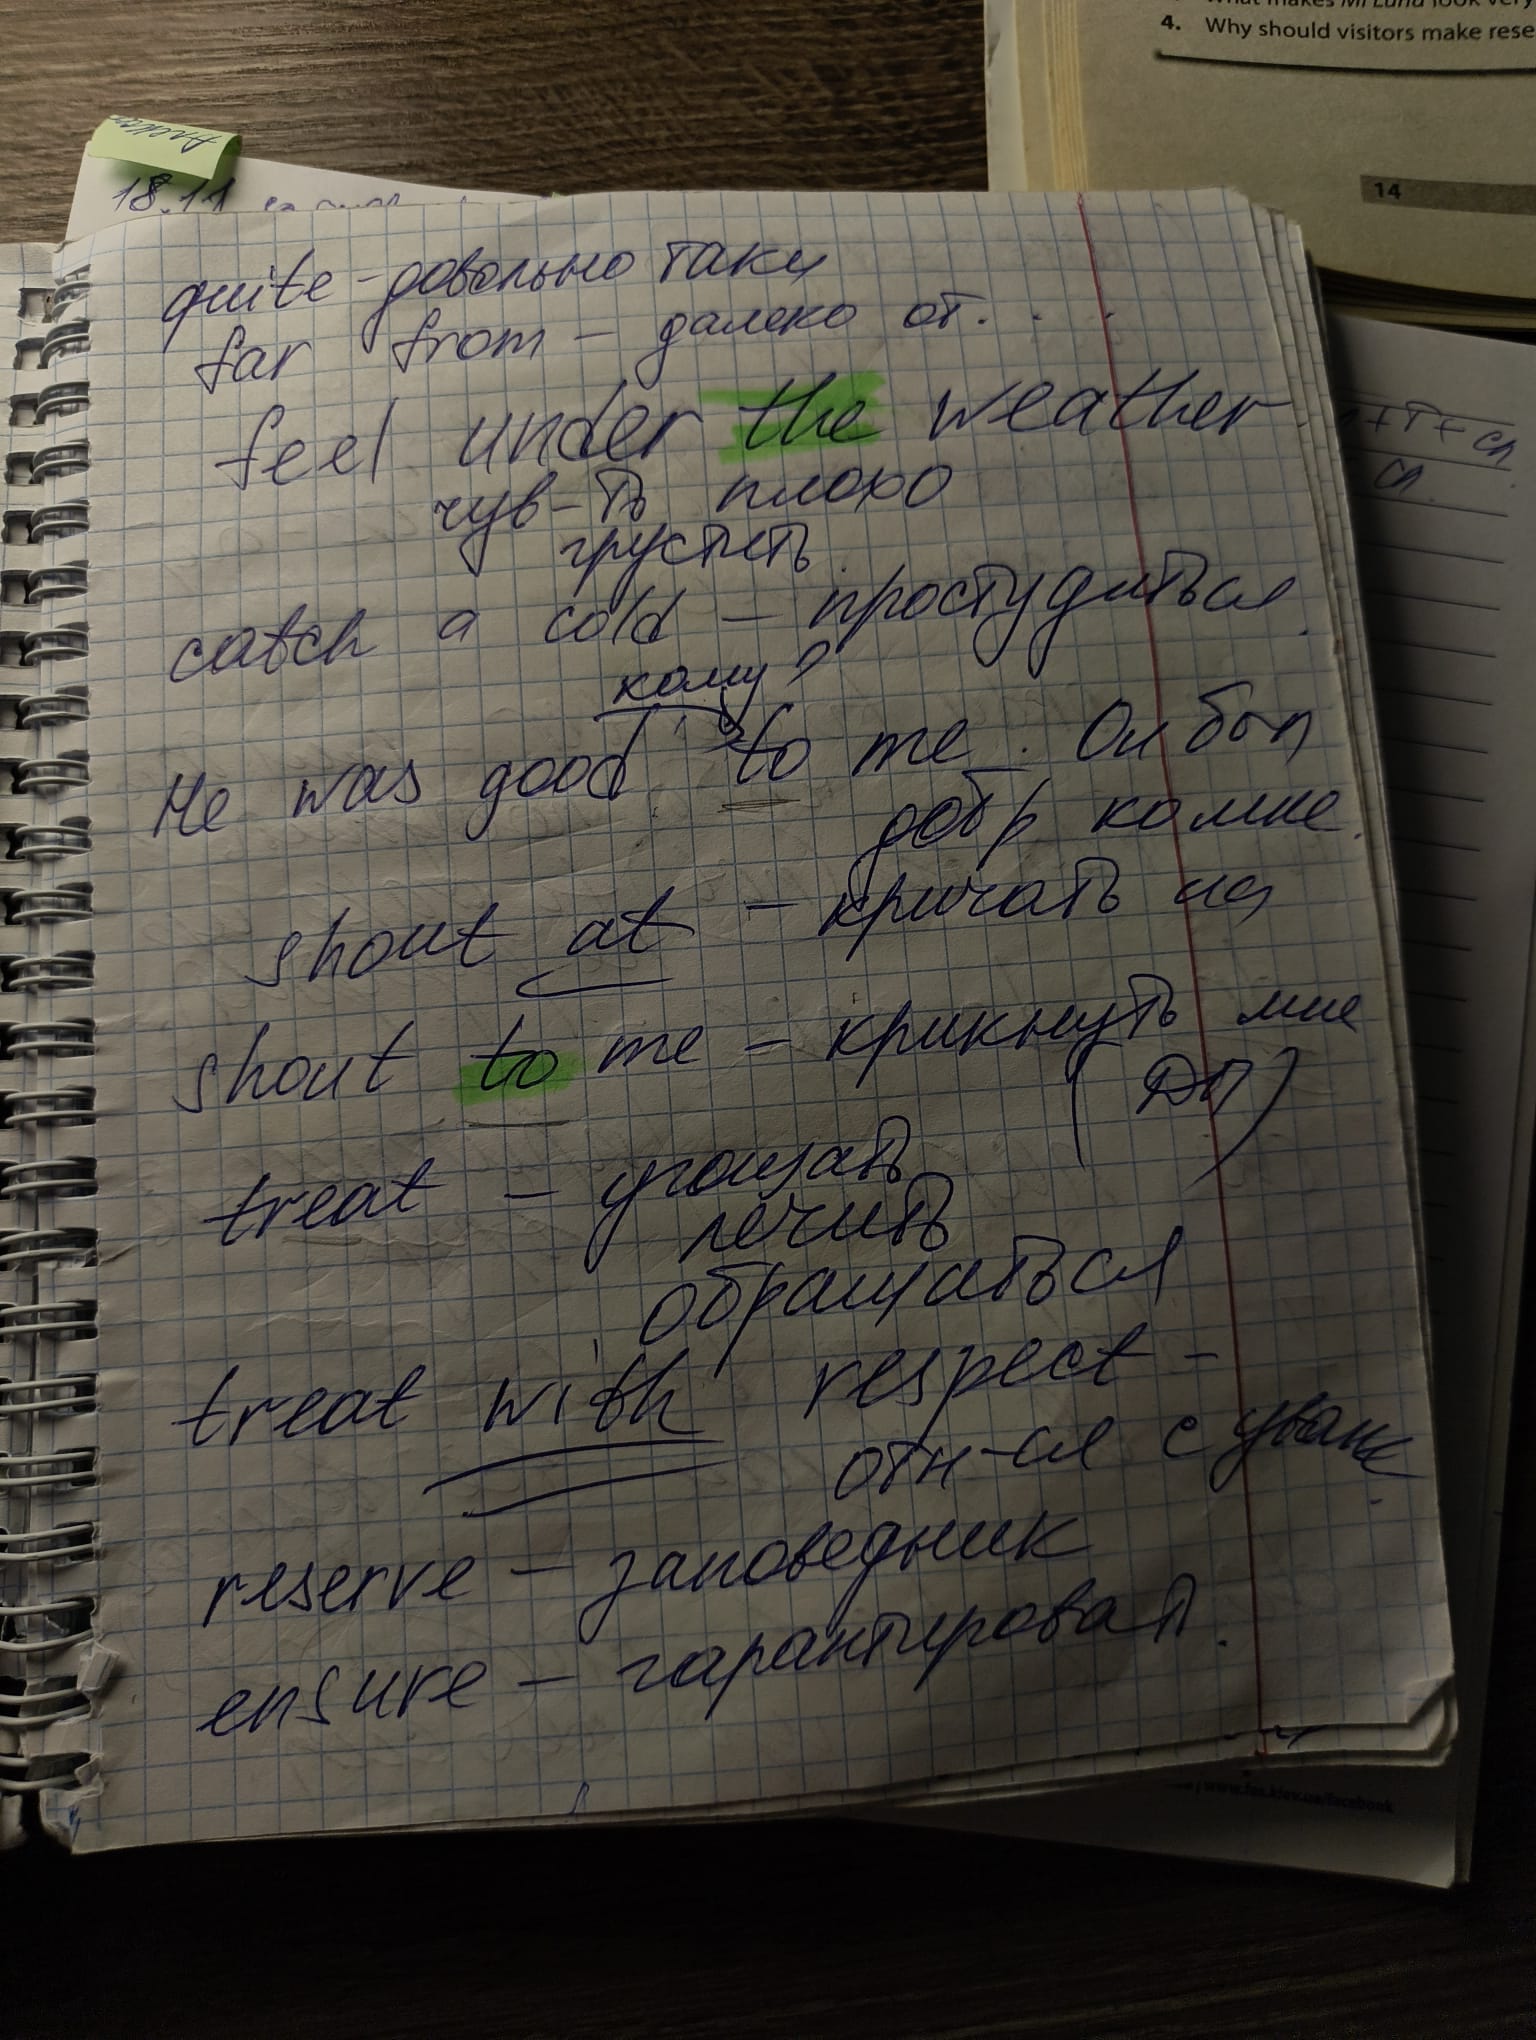 What makes Mi Luna look very
4. Why should visitors make rese
14
18.11
quite - довольно таки
far from - далеко от...
feel under the weather
чув-ть плохо
грустить
catch a cold - простудиться.
кому?
He was good to me. Он был
добр ко мне.
shout at - кричать на
shout to me - крикнуть мне
(ДП)
treat - угощать
лечить
обращаться
treat with respect -
отн-ся с уваж.
reserve - заповедник
ensure - гарантироват.
+T+сл
сл.
www.fos.kiev.ua/facebook